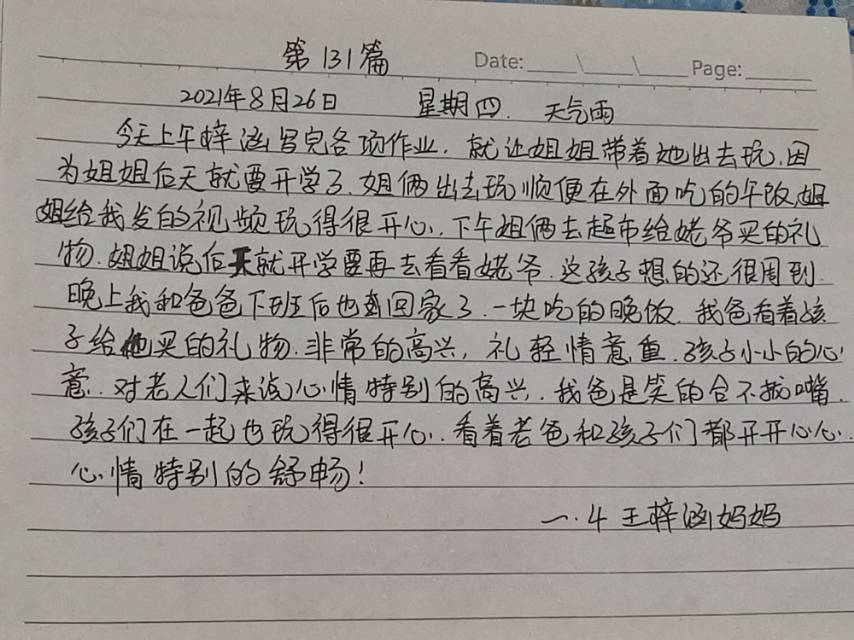 第131篇 Date: Page:
2021年8月26日 星期四. 天气雨
今天上午梓涵写完各项作业.就让姐姐带着她出去玩.因
为姐姐后天就要开学了.姐俩出去玩顺便在外面吃的午饭.姐
姐给我发的视频玩得很开心.下午姐俩去超市给姥爷买的礼
物.姐姐说后天就开学要再去看看姥爷.这孩子想的还很周到.
晚上我和爸爸下班后也到回家了.一块吃的晚饭.我爸看着孩
子给他买的礼物.非常的高兴,礼轻情意重.孩子小小的心
意.对老人们来说心情特别的高兴.我爸是笑的合不拢嘴.
孩子们在一起也玩得很开心.看着老爸和孩子们都开开心心.
心情特别的舒畅!
一.4王梓涵妈妈